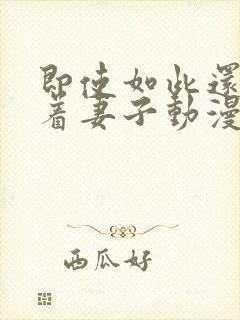 即使如此還
着妻子動漫
西瓜好